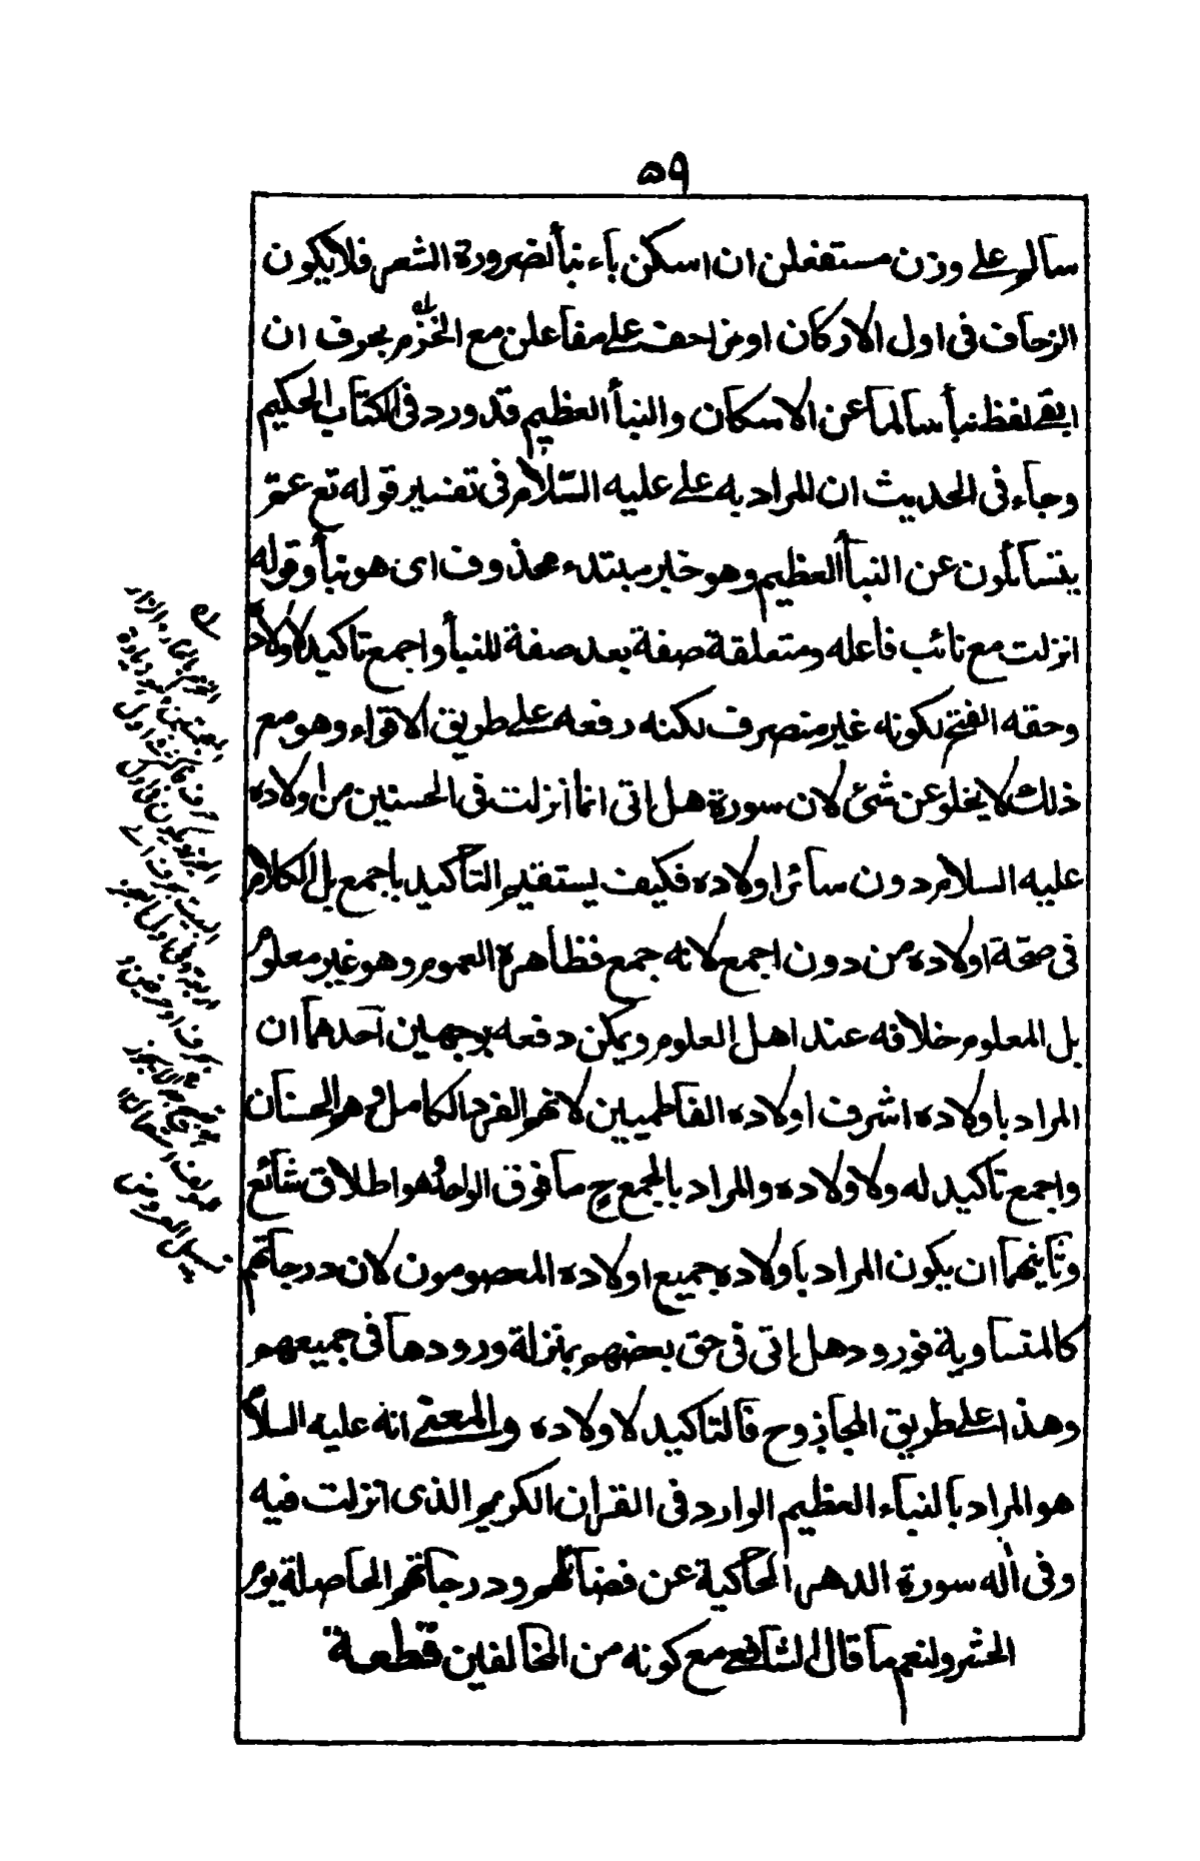 ٥٩
سالم على وزن مستفعلن ان اسكن باء نبأ لضرورة الشعر فلا يكون
الزحاف فى اول الاركان او مزاحف على مفاعلن مع الخزم بحرف ان
ابقى لفظ نبأ سالما عن الاسكان والنبأ العظيم قد ورد فى الكتاب الحكيم
وجاء فى الحديث ان المراد به على عليه السّلام فى تفسير قوله تع عمّ
يتسائلون عن النبأ العظيم وهو خبر مبتدء محذوف اى هو نبأ وقوله
انزلت مع نائب فاعله ومتعلقة صفة بعد صفة للنبأ واجمع تاكيد لاولاده
وحقه الفتح لكونه غير منصرف لكنه رفعه على طريق الاقواء وهو مع
ذلك لا يخلو عن شئ لان سورة هل اتى انما انزلت فى الحسنين من اولاده
عليه السلام دون سائر اولاده فكيف يستقيم التاكيد باجمع بل الكلام
فى صحّة اولاده من دون اجمع لانه جمع فظاهره العموم وهو غير معلوم
بل المعلوم خلافه عند اهل العلوم ويمكن دفعه بوجهين احدهما ان
المراد باولاده اشرف اولاده الفاطميين لانهم الفرد الكامل وهو الحسنان
واجمع تاكيد له ولاولاده والمراد بالجمع ح ما فوق الواحد وهو اطلاق شائع
وثانيهما ان يكون المراد باولاده جميع اولاده المعصومون لان درجاتهم
كالمتساوية فورود هل اتى فى حق بعضهم بمنزلة ورودها فى جميعهم
وهذا على طريق المجاز وح فالتاكيد لاولاده والمعنى انه عليه السلام
هو المراد بالنباء العظيم الوارد فى القران الكريم الذى انزلت فيه
وفى اله سورة الدهر الحاكية عن فضائلهم ودرجاتهم الحاصلة يوم
الحشر ولنعم ما قال الشافعى مع كونه من المخالفين قطعة